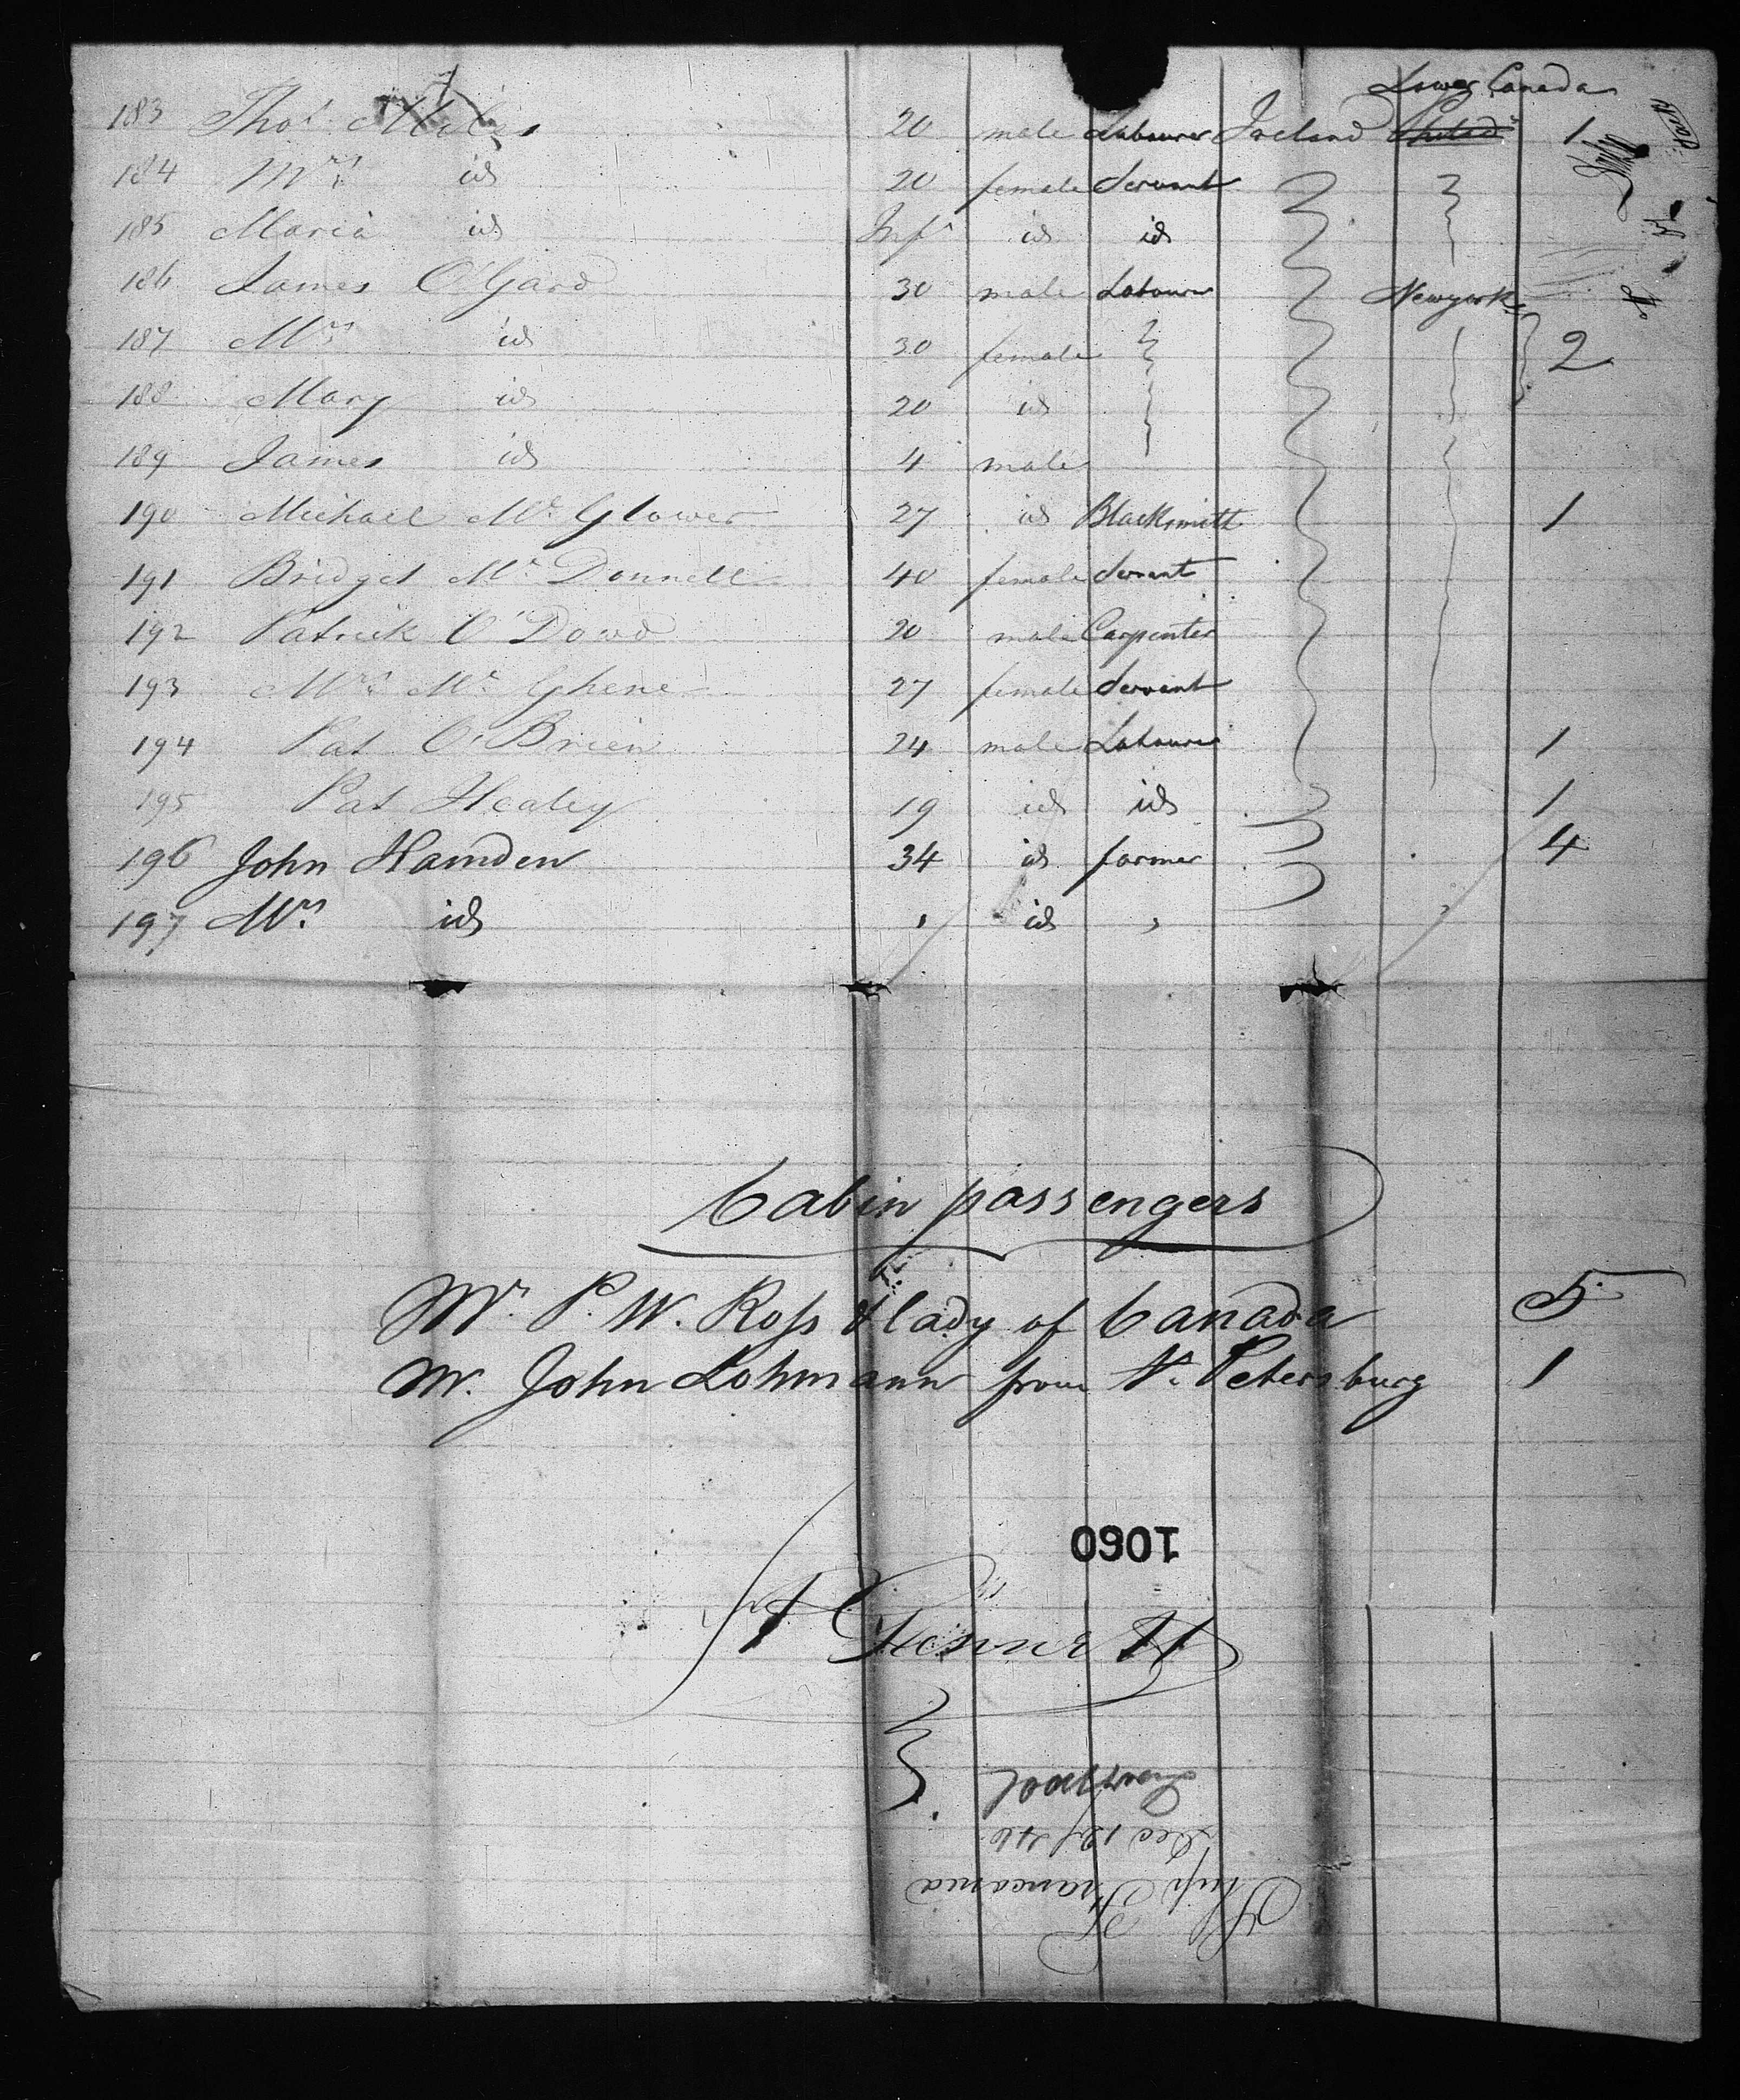 Lower Canada
183 Thos. Miles 20 male Labourer Ireland 1
184 Mrs. id 20 female Servant
185 Maria id Inft id id
186 James O'Gard 30 male Labourer Newyork
187 Mrs id 30 female 2
188 Mary id 20 id
189 James id 4 male
190 Michael Mc Glower 27 id Blacksmith 1
191 Bridget Mc Donnell 40 female Servant
192 Patrick O'Dowd 20 male Carpenter
193 Mrs. Mc Ghene 27 female Servant
194 Pat O'Brien 24 male Labourer 1
195 Pat Healey 19 id id 1
196 John Hamden 34 id farmer 4
197 Mrs. id " id "
Cabin passengers
Mr. P. W. Ross & lady of Canada 5
Mr. John Lohmann from St. Petersburg 1
1060
Ship Franconia
Dec 12/46
Liverpool